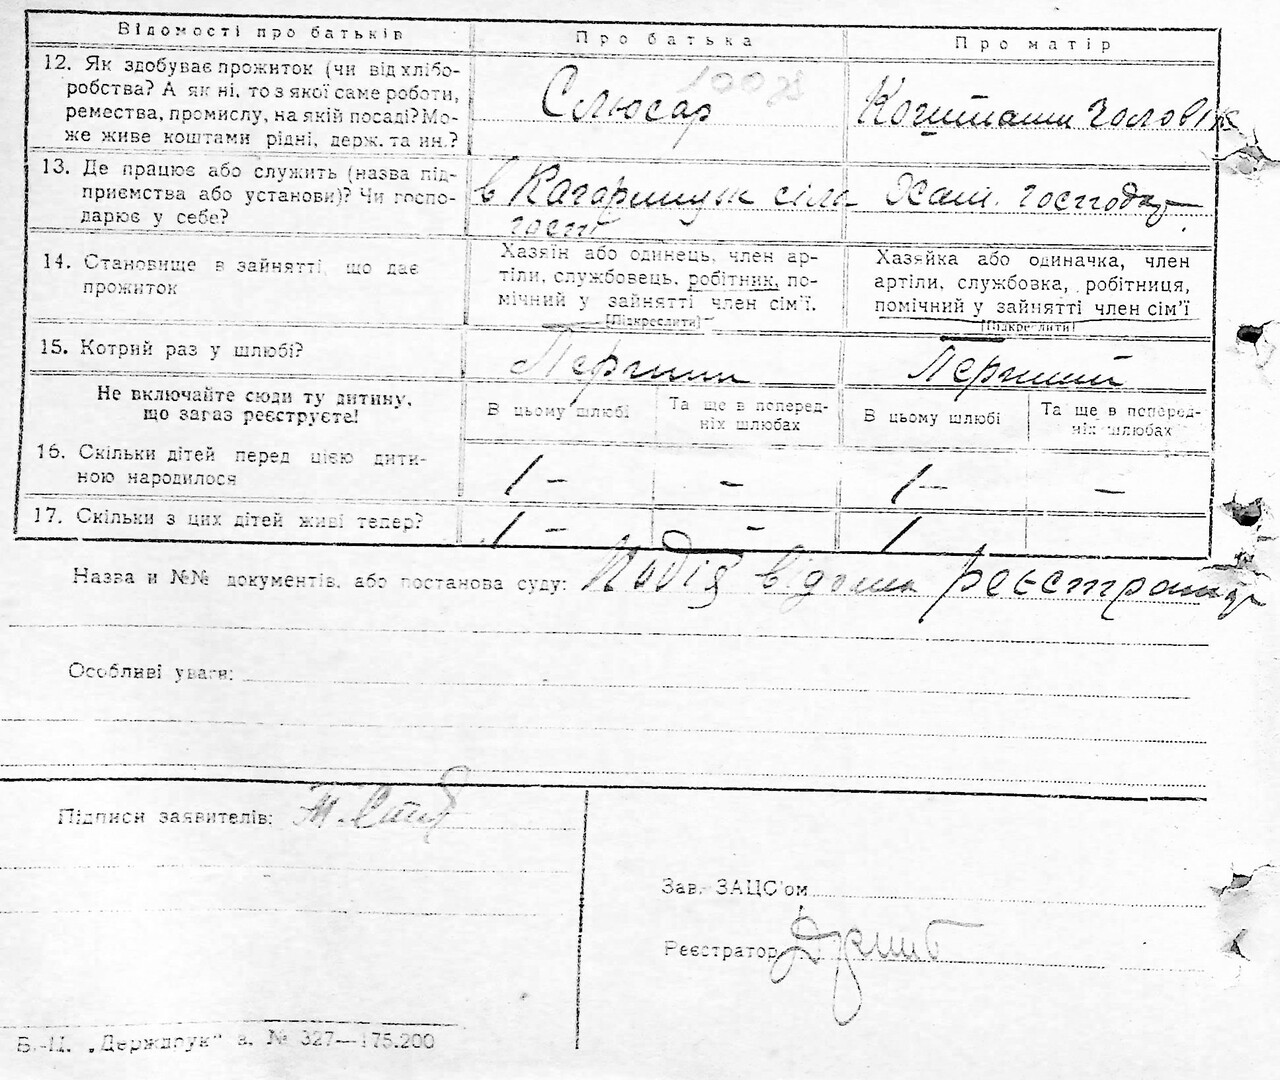 Відомості про батьків
Про батька
Про матір
12. Як здобуває прожиток (чи від хлібо-
робства? А як ні, то з якої саме роботи,
ремества, промислу, на якій посаді? Мо-
же живе коштами рідні, держ. та ин.?
Слюсар
Коштами чоловіка
13. Де працює або служить (назва під-
приємства або установи)? Чи госпо-
дарює у себе?
в
сіль
госп
Хат. господар.
14. Становище в зайнятті, що дає
прожиток
Хазяїн або одинець, член ар-
тілі, службовець, робітник, по-
мічний у зайнятті член сім'ї.
(Підкреслити)
Хазяйка або одиначка, член
артілі, службовка, робітниця,
помічний у зайнятті член сім'ї
(Підкреслити)
15. Котрий раз у шлюбі?
Перший
Перший
Не включайте сюди ту дитину,
що зараз реєструєте!
В цьому шлюбі
Та ще в поперед-
ніх шлюбах
В цьому шлюбі
Та ще в поперед-
ніх шлюбах
16. Скільки дітей перед цією дити-
ною народилося
1 –
–
1 –
–
17. Скільки з цих дітей живі тепер?
1 –
–
1
Назва й №№ документів, або постанова суду: Подія відома реєстратору
Особливі уваги:
Підписи заявителів:
Зав. ЗАЦС'ом
Реєстратор
Б.-Ц. „Держдрук" з. № 327—175.200